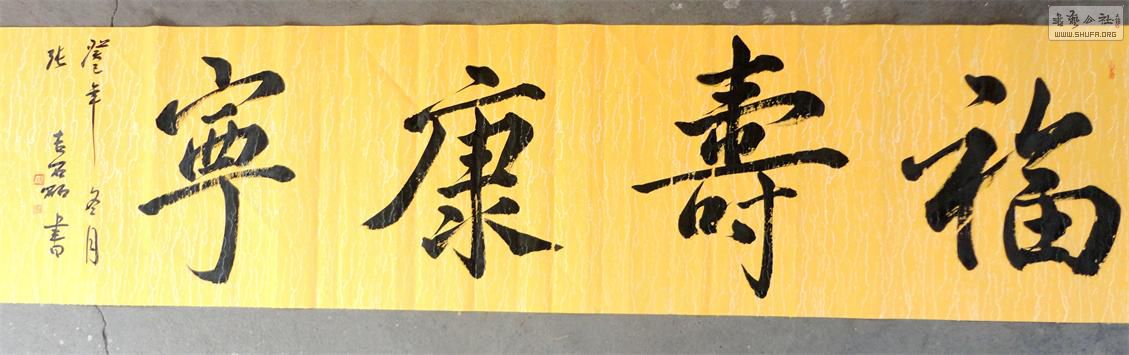 福壽康寧
癸巳年 冬月
张志石砳書
書藝公社
WWW.SHUFA.ORG